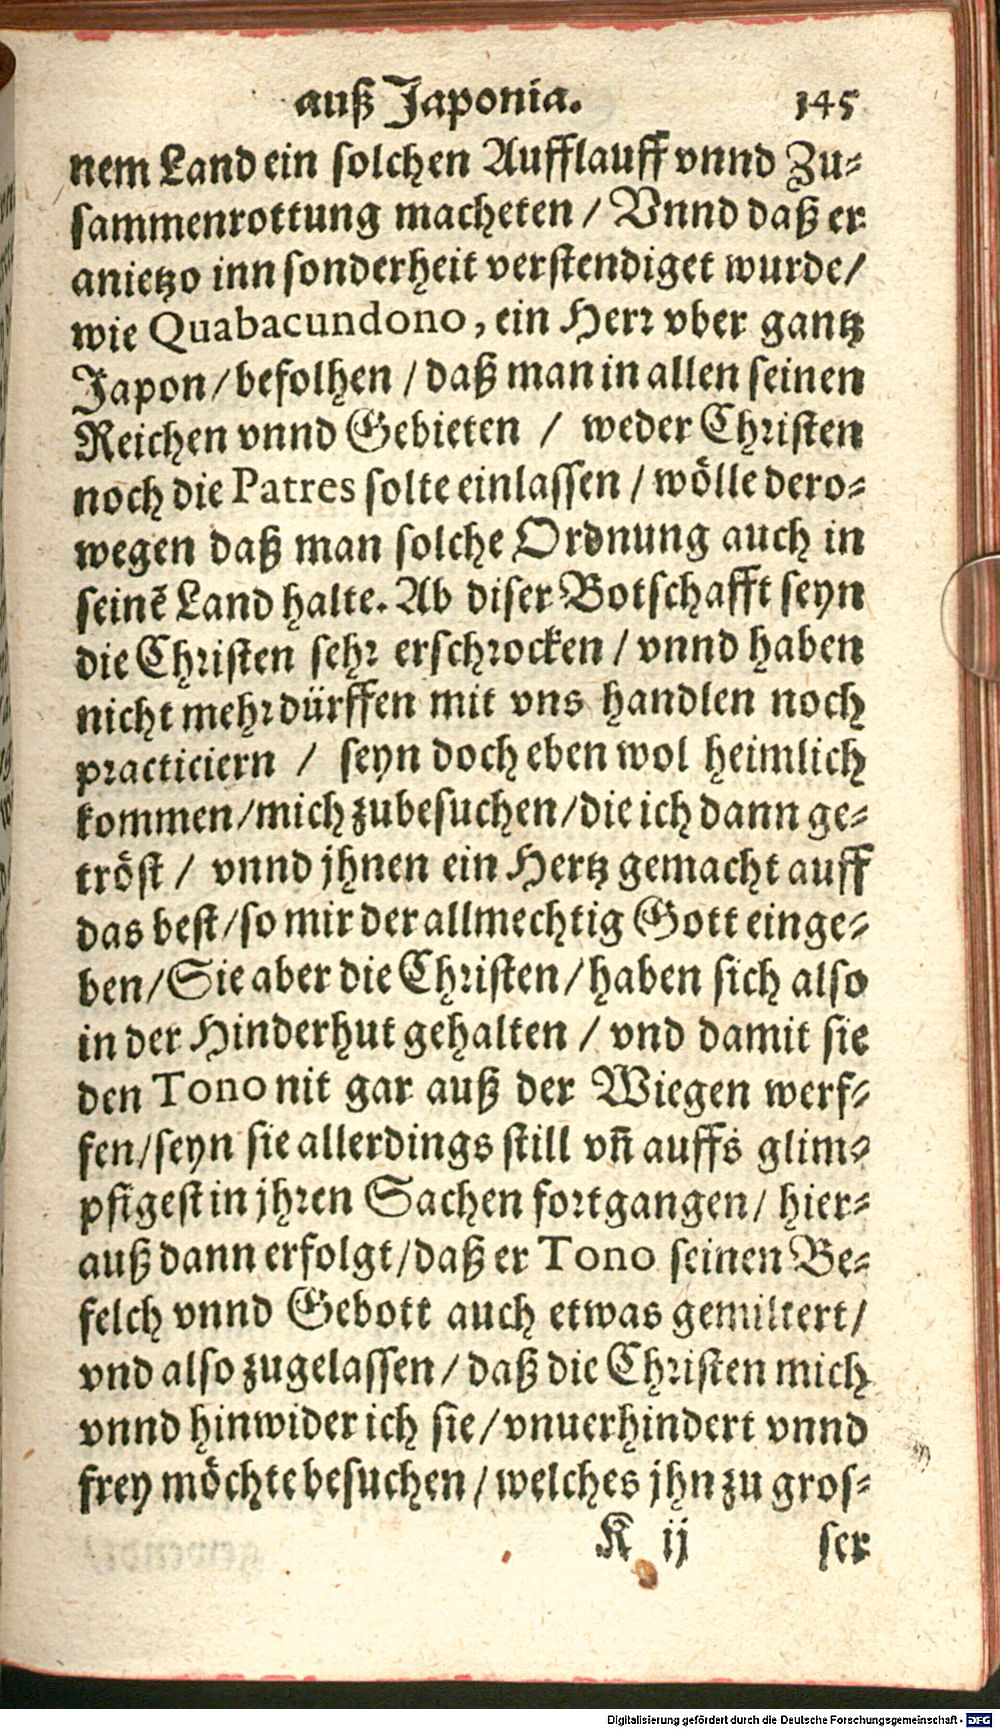 auß Japonia. 145
nem Land ein solchen Aufflauff vnnd Zu-
sammenrottung macheten / Vnnd daß er
anietzo inn sonderheit verstendiget wurde/
wie Quabacundono, ein Herr vber gantz
Japon/befolhen / daß man in allen seinen
Reichen vnnd Gebieten / weder Christen
noch die Patres solte einlassen / wölle dero-
wegen daß man solche Ordnung auch in
seinē Land halte. Ab diser Botschafft seyn
die Christen sehr erschrocken / vnnd haben
nicht mehr dürffen mit vns handlen noch
practiciern / seyn doch eben wol heimlich
kommen/mich zubesuchen/die ich dann ge-
tröst / vnnd jhnen ein Hertz gemacht auff
das best/so mir der allmechtig Gott einge-
ben/Sie aber die Christen/haben sich also
in der Hinderhut gehalten / vnd damit sie
den Tono nit gar auß der Wiegen werf-
fen/seyn sie allerdings still vñ auffs glim-
pfigest in jhren Sachen fortgangen/ hier-
auß dann erfolgt/daß er Tono seinen Be-
felch vnnd Gebott auch etwas gemiltert/
vnd also zugelassen/daß die Christen mich
vnnd hinwider ich sie/vnuerhindert vnnd
frey möchte besuchen/welches jhn zu gros-
K ij ser
Digitalisierung gefördert durch die Deutsche Forschungsgemeinschaft - DFG